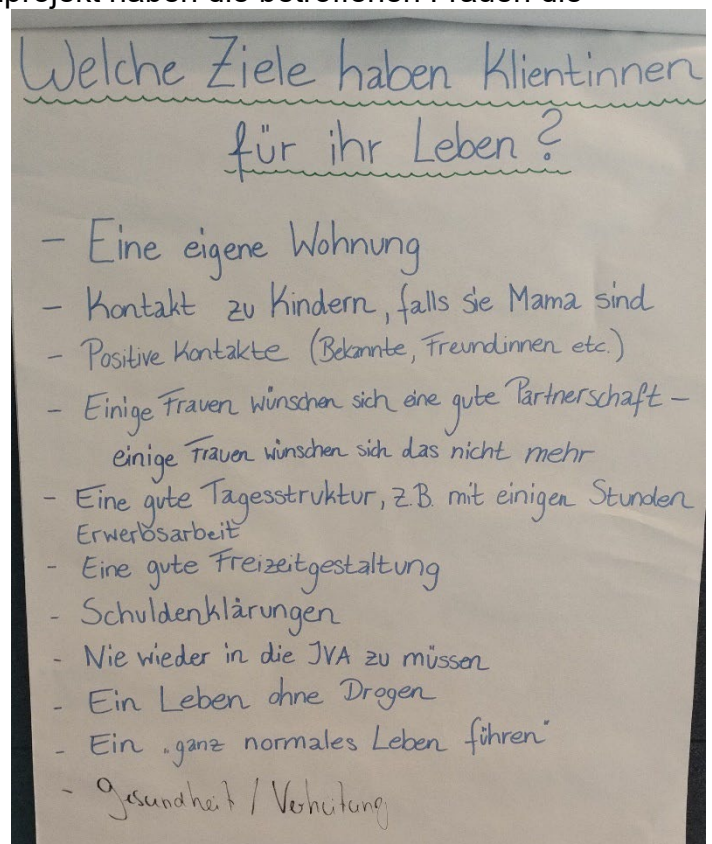 projekt haben die betroffenen Frauen die
Welche Ziele haben Klientinnen
für ihr Leben?
- Eine eigene Wohnung
- Kontakt zu Kindern, falls sie Mama sind
- Positive Kontakte (Bekannte, Freundinnen etc.)
- Einige Frauen wünschen sich eine gute Partnerschaft –
einige Frauen wünschen sich das nicht mehr
- Eine gute Tagesstruktur, z.B. mit einigen Stunden
Erwerbsarbeit
- Eine gute Freizeitgestaltung
- Schuldenklärungen
- Nie wieder in die JVA zu müssen
- Ein Leben ohne Drogen
- Ein „ganz normales Leben führen"
- Gesundheit / Verhütung